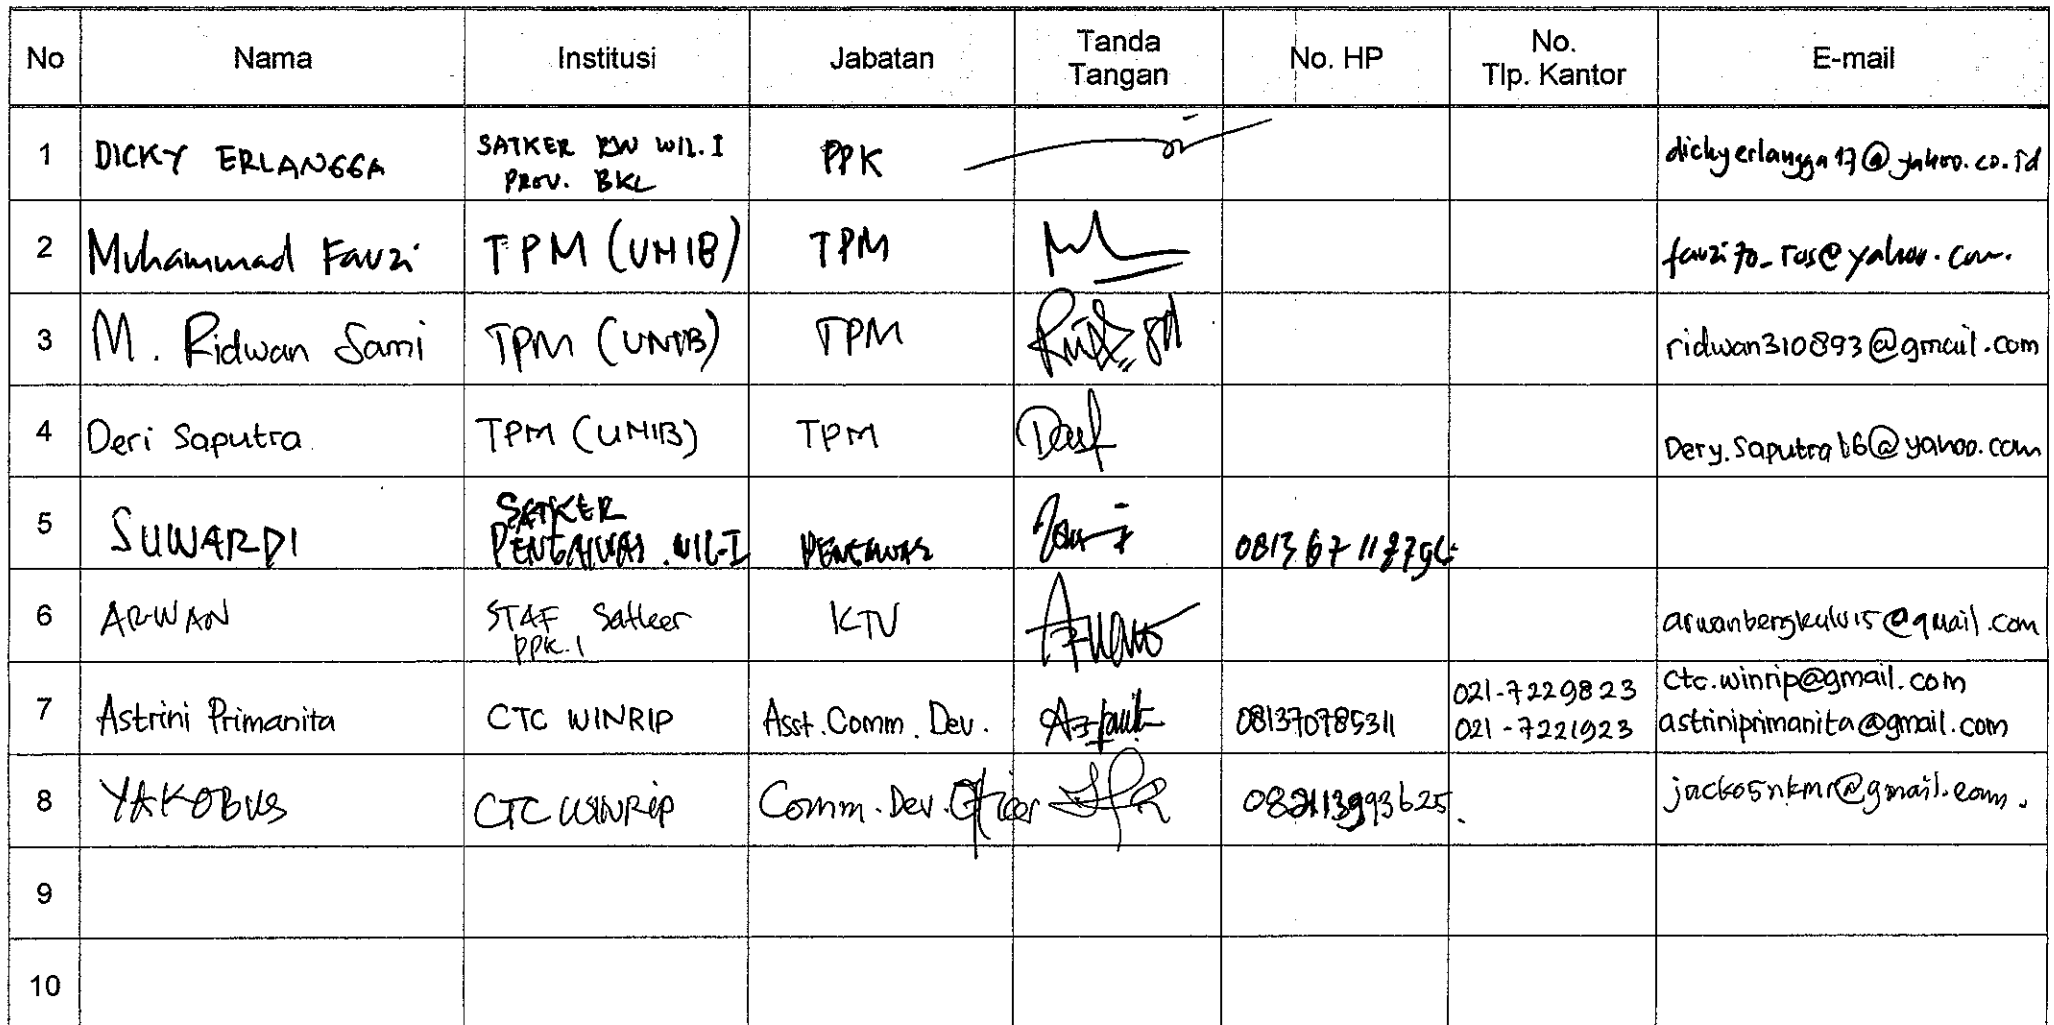 No Nama Institusi Jabatan Tanda Tangan No. HP No. Tlp. Kantor E-mail
1 DICKY ERLANGGA SATKER WIL. I PROV. BKL PPK dickyerlangga17@yahoo.co.id
2 Muhammad Fauzi TPM (UNIB) TPM
3 M. Ridwan Sami TPM (UNIB) TPM ridwan310893@gmail.com
4 Deri Saputra TPM (UNIB) TPM Dery.Saputra16@yahoo.com
5 SUWARDI SATKER PENGAWAS WIL-I PENGAWAS
6 ARWAN STAF Satker PPK.1 KTU arwanbengkulu15@gmail.com
7 Astrini Primanita CTC WINRIP Asst.Comm.Dev. 081370785311 021-7229823 021-7221923 ctc.winrip@gmail.com astriniprimanita@gmail.com
8 YAKOBUS CTC WINRIP Comm.Dev.Officer
9
10